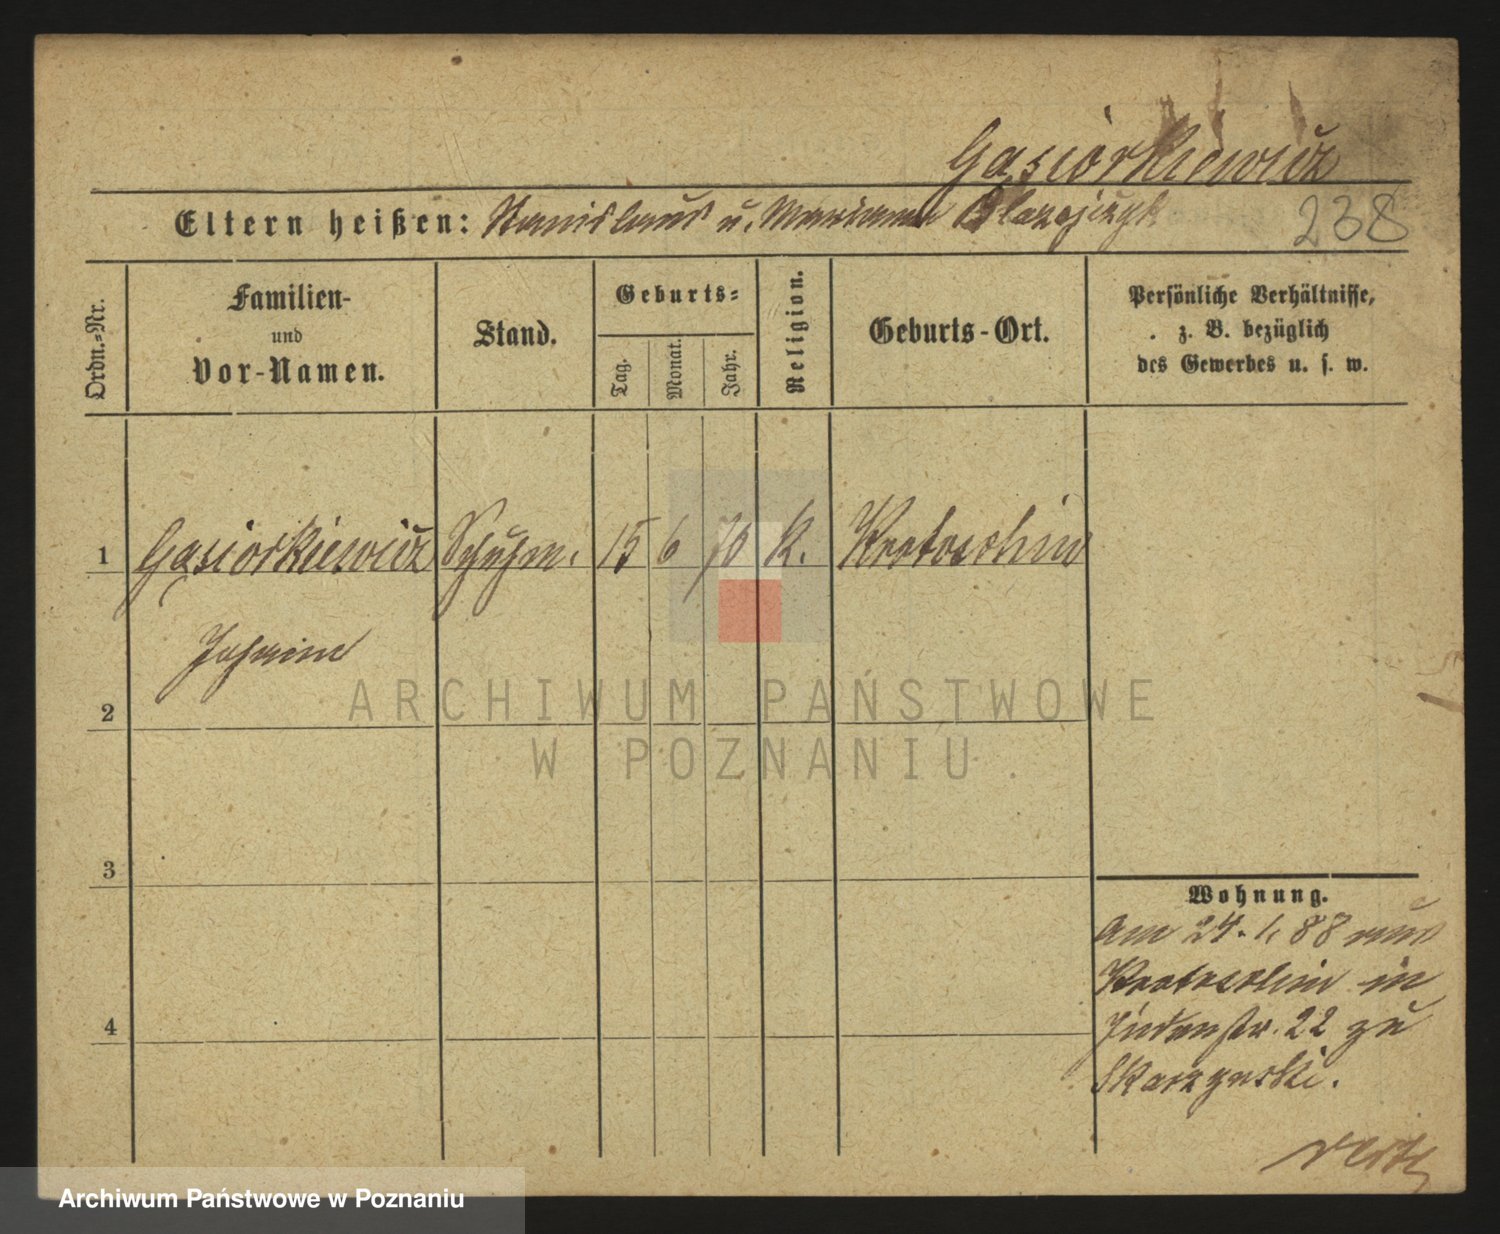 Gasiorkiewicz
Eltern heißen: Stanislaus u. Marianna Blazejczyk 238
Ordn.-Nr.
Familien-
und
Vor-Namen.
Stand.
Geburts-
Tag.
Monat.
Jahr.
Religion.
Geburts-Ort.
Persönliche Verhältnisse,
z. B. bezüglich
des Gewerbes u. s. w.
1 Gasiorkiewicz Schuhm. 15 6 70 K. Krotoschin
2
3
4
Wohnung.
Am 24. 1. 88 aus
Krotoschin in
Judenstr. 22 zu
Skarzynski.
ARCHIWUM PAŃSTWOWE
W POZNANIU
Archiwum Państwowe w Poznaniu